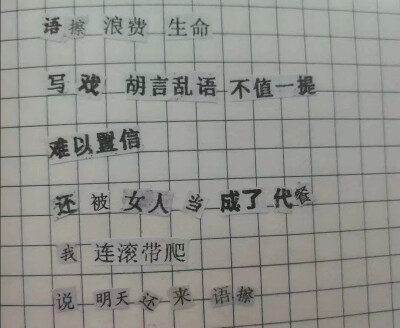 语擦 浪费 生命
写戏 胡言乱语 不值一提
难以置信
还 被 女人 当 成了 代餐
我 连滚带爬
说 明天 还 来 语擦